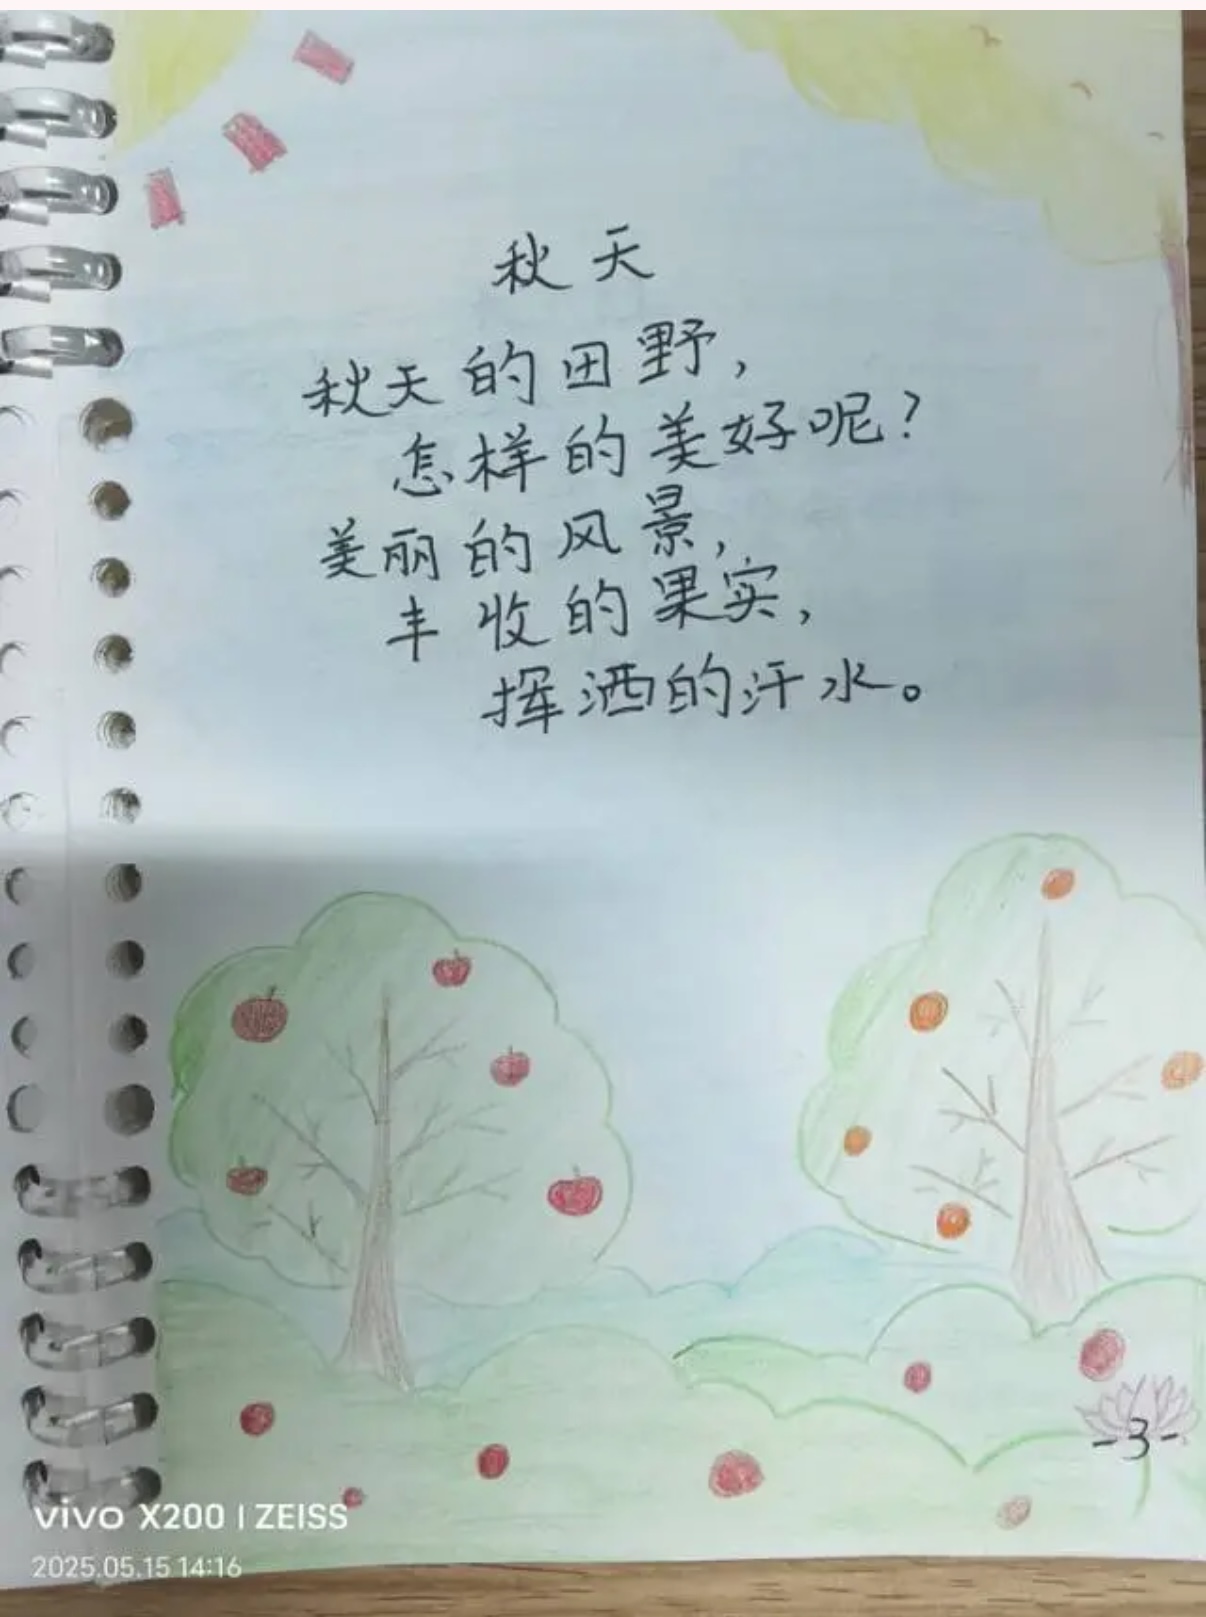 秋天
秋天的田野，
怎样的美好呢？
美丽的风景，
丰收的果实，
挥洒的汗水。
-3-
vivo X200 | ZEISS
2025.05.15 14:16